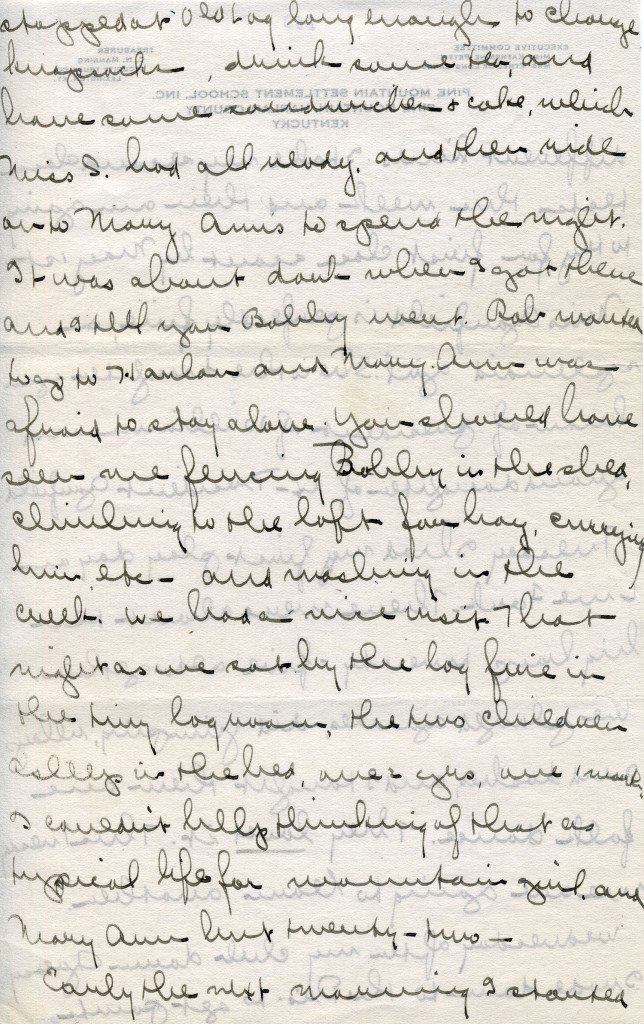 stopped at Old Log long enough to change
knapsacks, drink some tea, and
have some sandwiches & cake, which
Miss S. had all ready. and then ride
on to Mary Anns to spend the night.
It was about dark when I got there
and I tell you Bobby went. Rob wanted
to go to Harlan and Mary Ann was
afraid to stay alone. You should have
seen me feeding Bobby in the shed,
climbing to the loft for hay, currying
him, etc - and washing in the
creek. We had a nice visit that
night as we sat by the log fire in
the tiny log room, the two children
asleep in the bed, one 2 yrs, one 1 month.
I couldn't help thinking of that as
typical life for mountain girl. and
Mary Ann but twenty-two -
Early the next morning I started
PINE MOUNTAIN SETTLEMENT SCHOOL, INC.
KENTUCKY
EXECUTIVE COMMITTEE
TREASURER